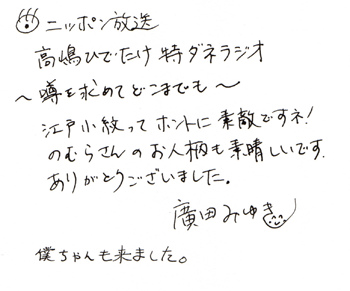 ニッポン放送
高嶋ひでたけ 特ダネラジオ
～噂を求めてどこまでも～
江戸小紋ってホントに素敵ですネ!
のむらさんのお人柄も素晴しいです。
ありがとうございました。
廣田みゆき
僕ちゃんも来ました。